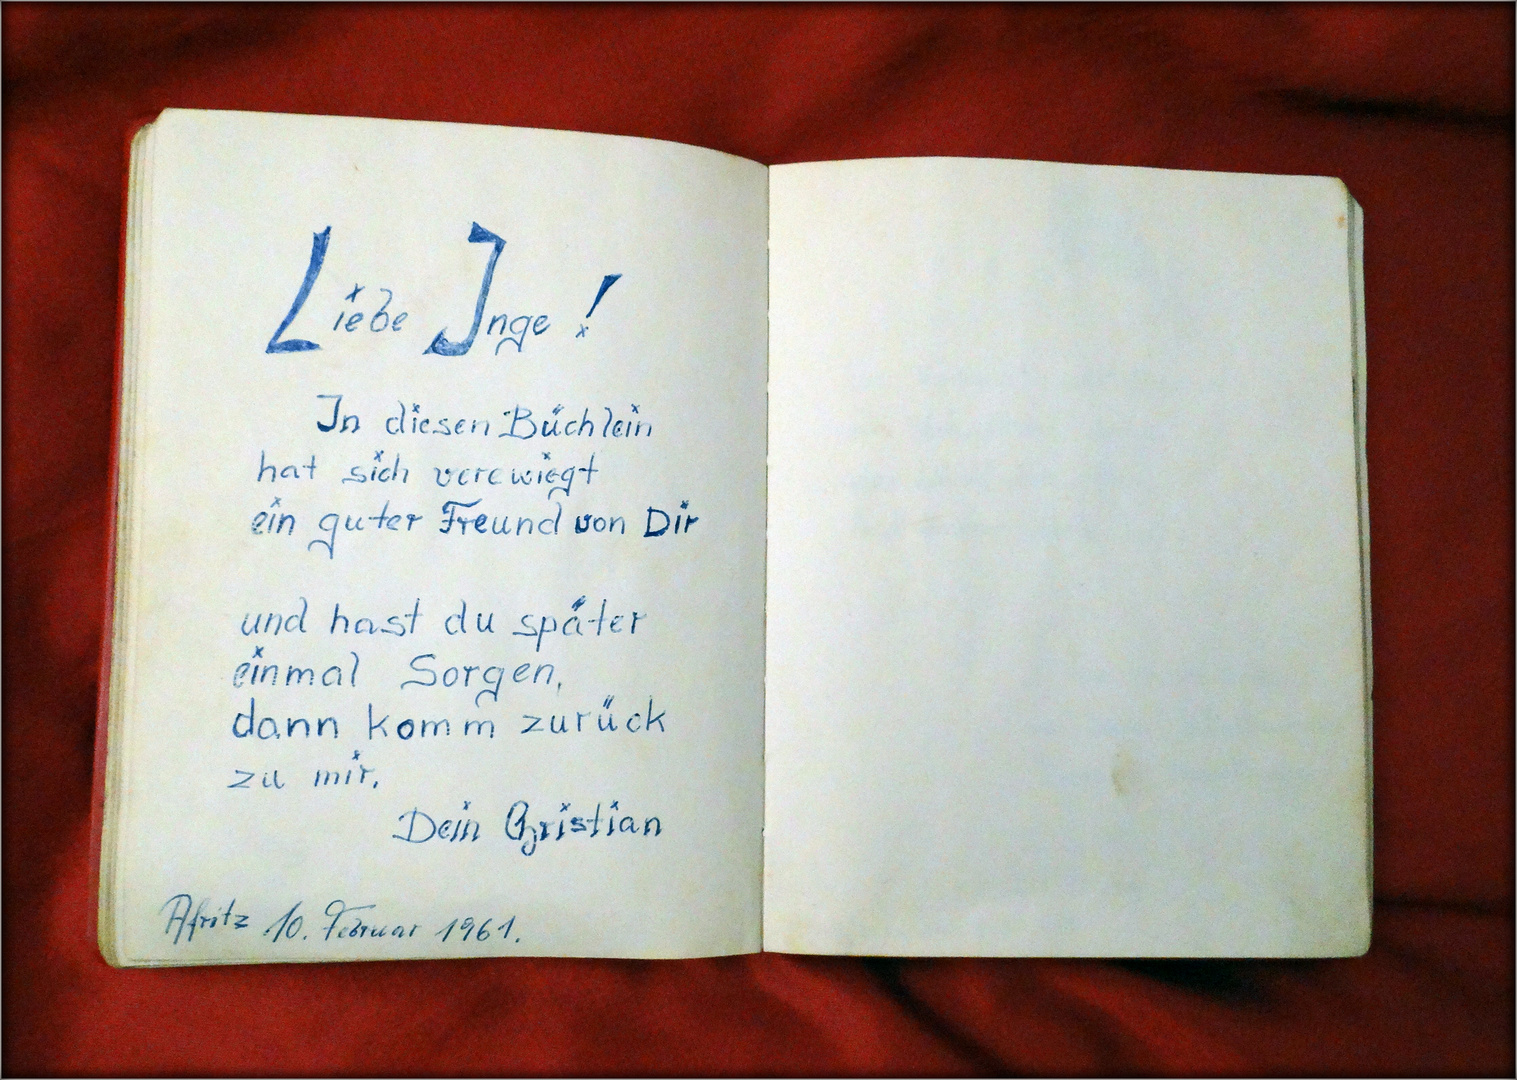 Liebe Inge!
In diesen Büchlein
hat sich verewiegt
ein guter Freund von Dir
und hast du später
einmal Sorgen,
dann komm zurück
zu mir.
Dein Christian
Afritz 10. Februar 1961.